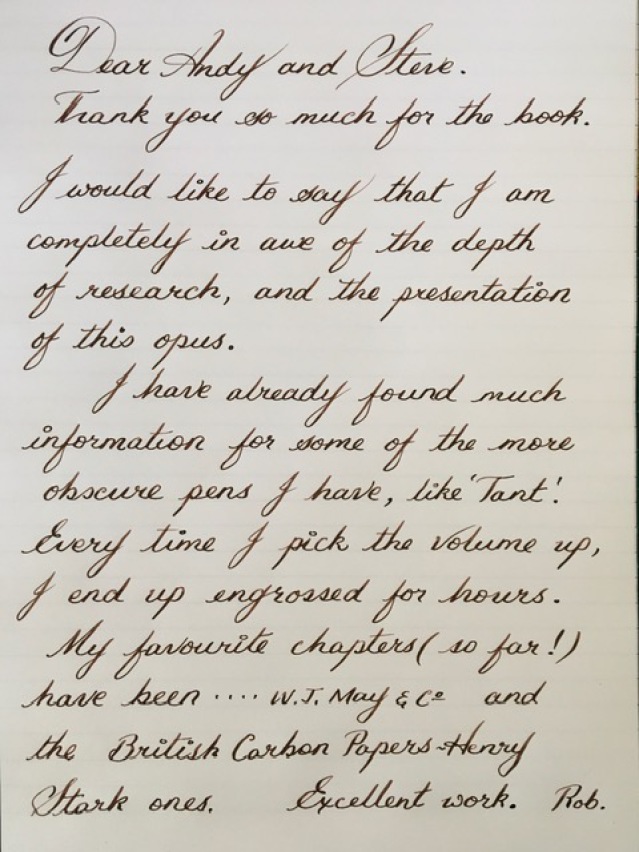 Dear Andy and Steve.
Thank you so much for the book.
I would like to say that I am
completely in awe of the depth
of research, and the presentation
of this opus.
I have already found much
information for some of the more
obscure pens I have, like 'Tant'.
Every time I pick the volume up,
I end up engrossed for hours.
My favourite chapters (so far!)
have been .... W.J. May & Cº and
the British Carbon Papers-Henry
Stark ones. Excellent work. Rob.